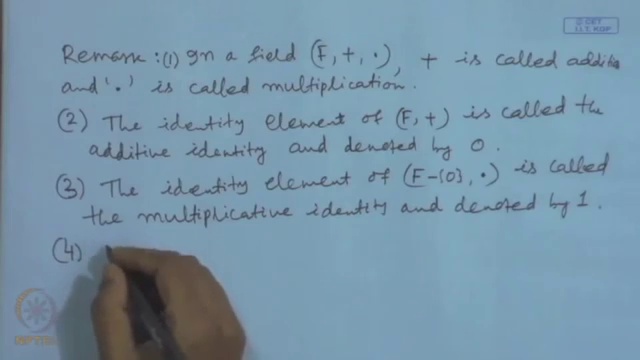 © CET
I.I.T. KGP
Remark : (1) In a field (F, +, ·), + is called addition
and '·' is called multiplication.
(2) The identity element of (F, +) is called the
additive identity and denoted by 0.
(3) The identity element of (F-{0}, ·) is called
the multiplicative identity and denoted by 1.
(4)
NPTEL